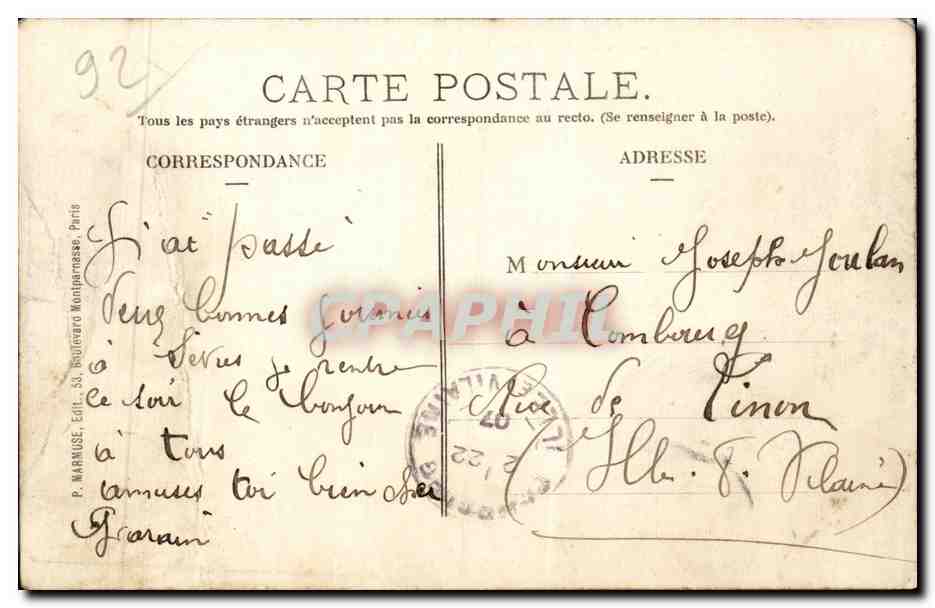 92
CARTE POSTALE.
Tous les pays étrangers n'acceptent pas la correspondance au recto. (Se renseigner à la poste).
CORRESPONDANCE
J'ai passé
deux bonnes journées
à Sèvres je rentre
ce soir le bonjour
à tous
amuses toi bien cher
P. MARMUSE, Edit., 53, Boulevard Montparnasse, Paris
ADRESSE
Monsieur Joseph
à Combourg
Rue de Linon
(Ille. &. Vilaine)
ILLE ET VILAINE
22
07
CPAPHIL